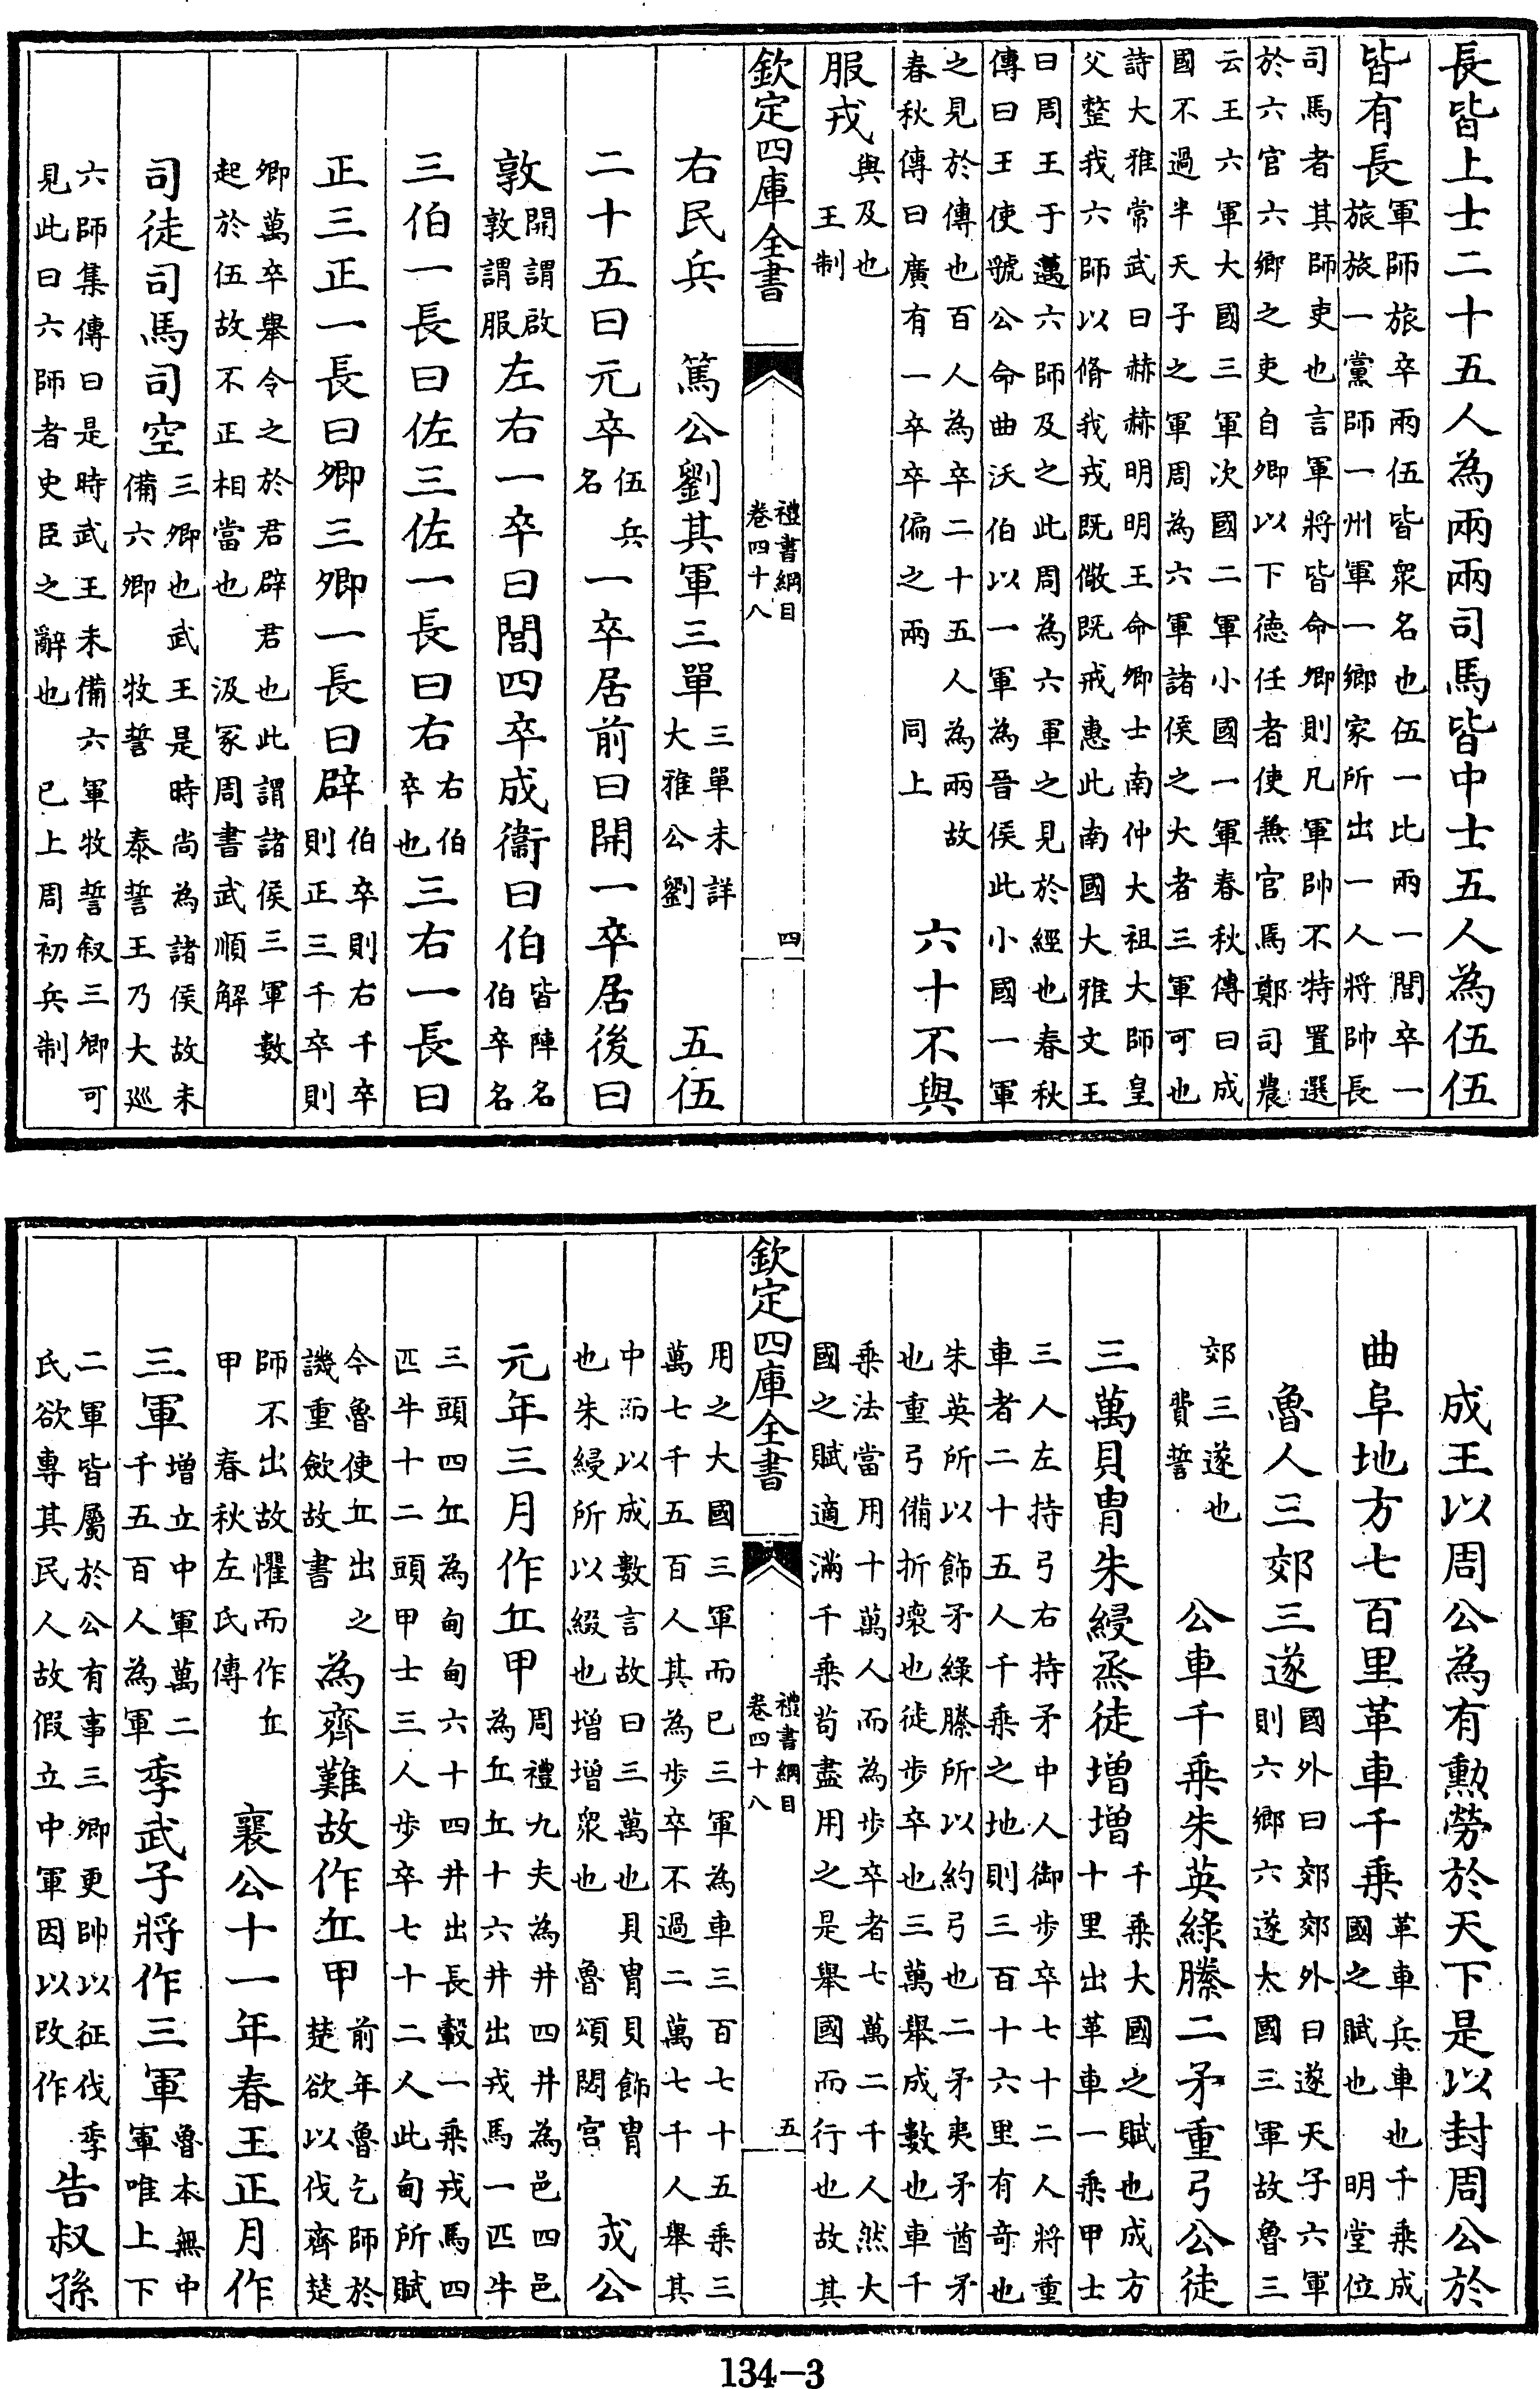 長皆上士二十五人為兩兩司馬皆中士五人為伍伍
皆有長
軍師旅卒兩伍皆衆名也伍一比兩一閭卒一
旅旅一黨師一州軍一鄉家所出一人將帥長
司馬者其師吏也言軍將皆命卿則凡軍帥不特置選
於六官六鄉之吏自卿以下德任者使兼官焉鄭司農
云王六軍大國三軍次國二軍小國一軍春秋傳曰成
國不過半天子之軍周為六軍諸侯之大者三軍可也
詩大雅常武曰赫赫明明王命卿士南仲大祖大師皇
父整我六師以脩我戎既儆既戒惠此南國大雅文王
曰周王于邁六師及之此周為六軍之見於經也春秋
傳曰王使虢公命曲沃伯以一軍為晉侯此小國一軍
之見於傳也百人為卒二十五人為兩故
春秋傳曰廣有一卒卒偏之兩 同上
六十不與
服戎
與及也
王制
欽定四庫全書
禮書綱目
卷四十八
四
右民兵 篤公劉其軍三單
三單未詳
大雅公劉
五伍
二十五曰元卒
伍兵
名
一卒居前曰開一卒居後曰
敦
開謂啟
敦謂服
左右一卒曰閭四卒成衞曰伯
皆陣名
伯卒名
三伯一長曰佐三佐一長曰右
右伯
卒也
三右一長曰
正三正一長曰卿三卿一長曰辟
伯卒則右千卒
則正三千卒則
卿萬卒舉令之於君辟君也此謂諸侯三軍數
起於伍故不正相當也 汲冢周書武順解
司徒司馬司空
三卿也武王是時尚為諸侯故未
備六卿 牧誓 泰誓王乃大巡
六師集傳曰是時武王未備六軍牧誓叙三卿可
見此曰六師者史臣之辭也 已上周初兵制
成王以周公為有勲勞於天下是以封周公於
曲阜地方七百里革車千乘
革車兵車也千乘成
國之賦也 明堂位
魯人三郊三遂
國外曰郊郊外曰遂天子六軍
則六鄉六遂大國三軍故魯三
郊三遂也
費誓
公車千乘朱英綠縢二矛重弓公徒
三萬貝胄朱綅烝徒增增
千乘大國之賦也成方
十里出革車一乘甲士
三人左持弓右持矛中人御步卒七十二人將重
車者二十五人千乘之地則三百十六里有奇也
朱英所以飾矛綠縢所以約弓也二矛夷矛酋矛
也重弓備折壞也徒步卒也三萬舉成數也車千
乘法當用十萬人而為步卒者七萬二千人然大
國之賦適滿千乘苟盡用之是舉國而行也故其
欽定四庫全書
禮書綱目
卷四十八
五
用之大國三軍而已三軍為車三百七十五乘三
萬七千五百人其為步卒不過二萬七千人舉其
中而以成數言故曰三萬也貝胄貝飾胄
也朱綅所以綴也增增衆也 魯頌閟宫
成公
元年三月作丘甲
周禮九夫為井四井為邑四邑
為丘丘十六井出戎馬一匹牛
三頭四丘為甸甸六十四井出長轂一乘戎馬四
匹牛十二頭甲士三人步卒七十二人此甸所賦
今魯使丘出之
譏重斂故書
為齊難故作丘甲
前年魯乞師於
楚欲以伐齊楚
師不出故懼而作丘
甲 春秋左氏傳
襄公十一年春王正月作
三軍
增立中軍萬二
千五百人為軍
季武子將作三軍
魯本無中
軍唯上下
二軍皆屬於公有事三卿更帥以征伐季
氏欲專其民人故假立中軍因以改作
告叔孫
134-3